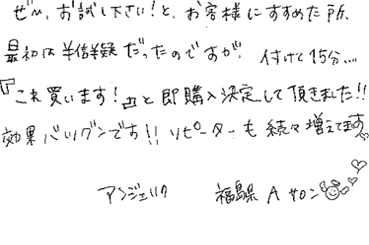 ぜひ、お試し下さい！と、お客様にすすめた所、
最初は半信半疑だったのですが、付けて15分....
『これ買います！』と即購入決定して頂きました!!
効果バツグンです!!リピーターも続々増えてます
アンジェリカ 福島県 Aサロン